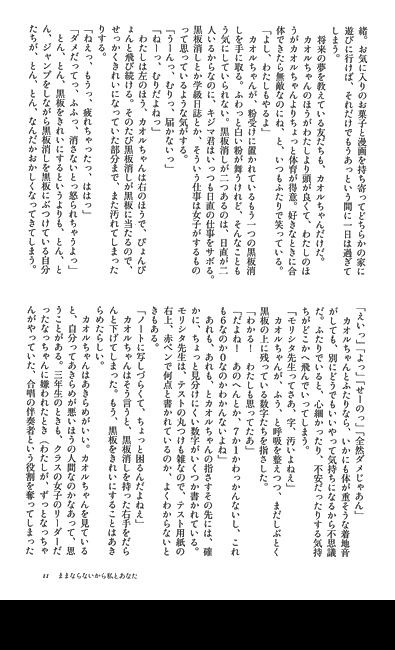 緒。お気に入りのお菓子と漫画を持ち寄ってどちらかの家に
遊びに行けば、それだけでもうあっという間に一日は過ぎて
しまう。
将来の夢を教えている友だちも、カオルちゃんだけだ。
カオルちゃんのほうがわたしより頭が良くて、わたしのほ
うがカオルちゃんよりちょっと体育が得意。好きなときに合
体できたら無敵なのにね、と、いつもふたりで笑っている。
「よし、わたしもやる」
カオルちゃんが、粉受けに置かれているもう一つの黒板消
しを手に取る。ふわっと白い粉が舞うけれど、そんなことも
う気にしていられない。黒板消しが二つあるのは、日直が二
人いるからなのに、キジマ君はいつも日直の仕事をサボる。
黒板消しとか学級日誌とか、そういう仕事は女子がするもの
って思っているような気がする。
「うーんっ、むりっ、届かないっ」
「ねーっ、むりだよねっ」
わたしは左のほう、カオルちゃんは右のほうで、ぴょんぴ
ょんと飛び続ける。そのたび黒板消しが黒板に当たるので、
せっかくきれいになっていた部分まで、また汚れてしまった
りする。
「ねぇっ、もうっ、疲れちゃったっ、ははっ」
「ダメだってっ、ふふっ、消さないとっ怒られちゃうよっ」
とん、とん、黒板をきれいにするというよりも、とん、と
ん、ジャンプをしながら黒板消しを黒板にぶつけている自分
たちが、とん、とん、なんだかおかしくなってきてしまう。
「えいっ」「よっ」「せーのっ」「全然ダメじゃあん」
カオルちゃんとふたりなら、いかにも体が重そうな着地音
がしても、別にどうでもいいやって気持ちになるから不思議
だ。ふたりでいると、心細かったり、不安だったりする気持
ちがどこかへ飛んでいってしまう。
「モリシタ先生ってさあ、字、汚いよねえ」
カオルちゃんが、ふう、と呼吸を整えつつ、まだしぶとく
黒板の上に残っている数字たちを指さした。
「わかる! わたしも思ってたあ」
「だよね! あのへんとか、7か1かわっかんないし、これ
も6なのか0なのかわかんないよね」
あれも、あれも、とカオルちゃんの指さすその先には、確
かに、ちょっと見分けにくい数字がいくつか書かれている。
モリシタ先生は、テストの丸つけも雑なので、テスト用紙の
右上、赤ペンで何点と書かれているのか、よくわからないと
きもある。
「ノートに写しづらくて、ちょっと困るんだよねえ」
カオルちゃんはそう言うと、黒板消しを持った右手をだら
んと下げてしまった。もう、黒板をきれいにすることはあき
らめたらしい。
カオルちゃんはあきらめがいい。カオルちゃんを見ている
と、自分ってあきらめが悪いほうの人間なのかなあって、思
うことがある。三年生のときも、クラスの女子のリーダーだ
ったなっちゃんに嫌われたとき(わたしが、ずっとなっちゃ
んがやっていた、合唱の伴奏者という役割を奪ってしまった
11 ままならないから私とあなた